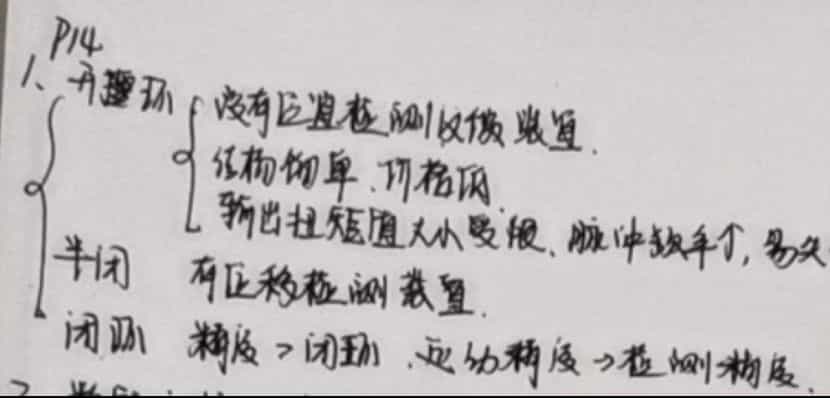 P14
1、开环 没有位置检测反馈装置.
结构简单、价格低
输出扭矩值大小受限、脉冲频率个,易失
半闭 有位移检测装置.
闭环 精度>闭环、运动精度→检测精度.
2